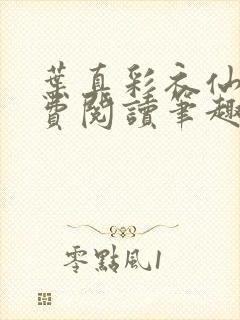 葉真彩衣仙
費閱讀筆趣
零點風1